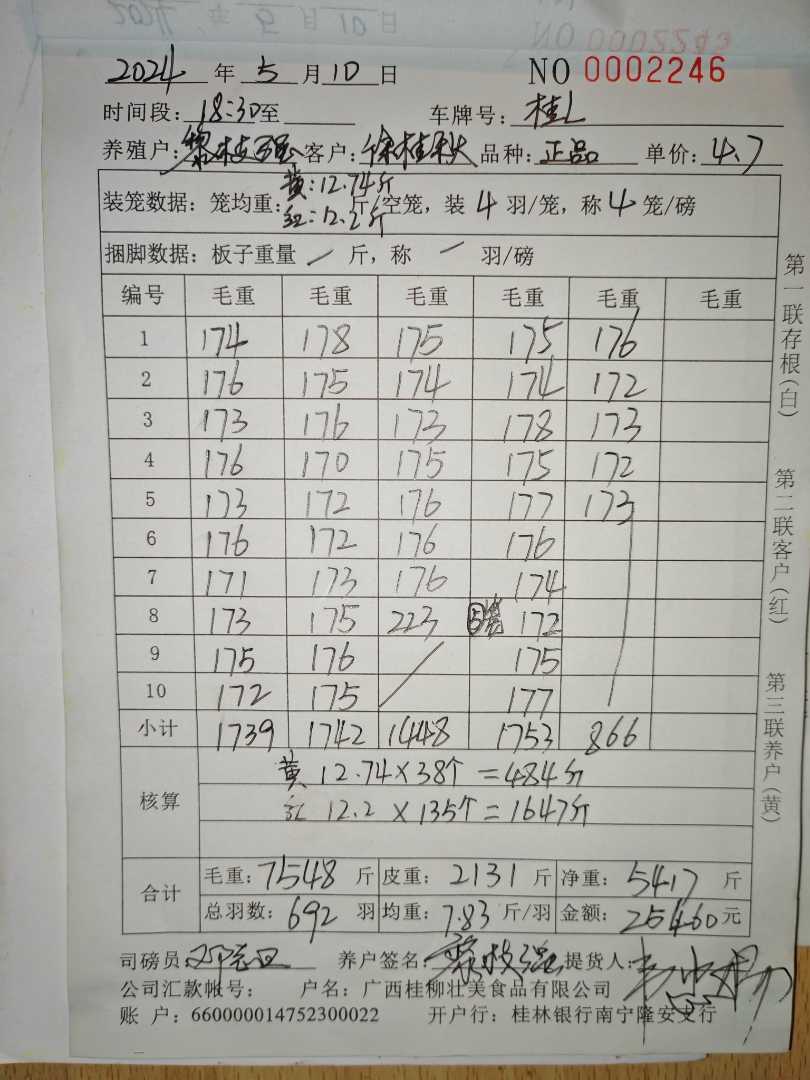 2024 年 5 月 10 日 NO 0002246
时间段: 18:30 至 车牌号: 桂L
养殖户: 黎枝强 客户: 徐桂秋 品种: 正品 单价: 4.7
黄:12.74斤
装笼数据: 笼均重: 斤/空笼, 装 4 羽/笼, 称 4 笼/磅
红:12.2斤
捆脚数据: 板子重量 / 斤, 称 / 羽/磅
编号 毛重 毛重 毛重 毛重 毛重 毛重
1 174 178 175 175 176
2 176 175 174 174 172
3 173 176 173 178 173
4 176 170 175 175 172
5 173 172 176 177 173
6 176 172 176 176
7 171 173 176 174
8 173 175 223 5笼 172
9 175 176 175
10 172 175 177
小计 1739 1742 1448 1753 866
黄 12.74×38个=484斤
核算 红 12.2×135个=1647斤
合计 毛重: 7548 斤 皮重: 2131 斤 净重: 5417 斤
总羽数: 692 羽 均重: 7.83 斤/羽 金额: 25460 元
司磅员 养户签名: 黎枝强 提货人:
公司汇款帐号: 户名: 广西桂柳壮美食品有限公司
账 户: 660000014752300022 开户行: 桂林银行南宁隆安支行
第一联存根(白)
第二联客户(红)
第三联养户(黄)